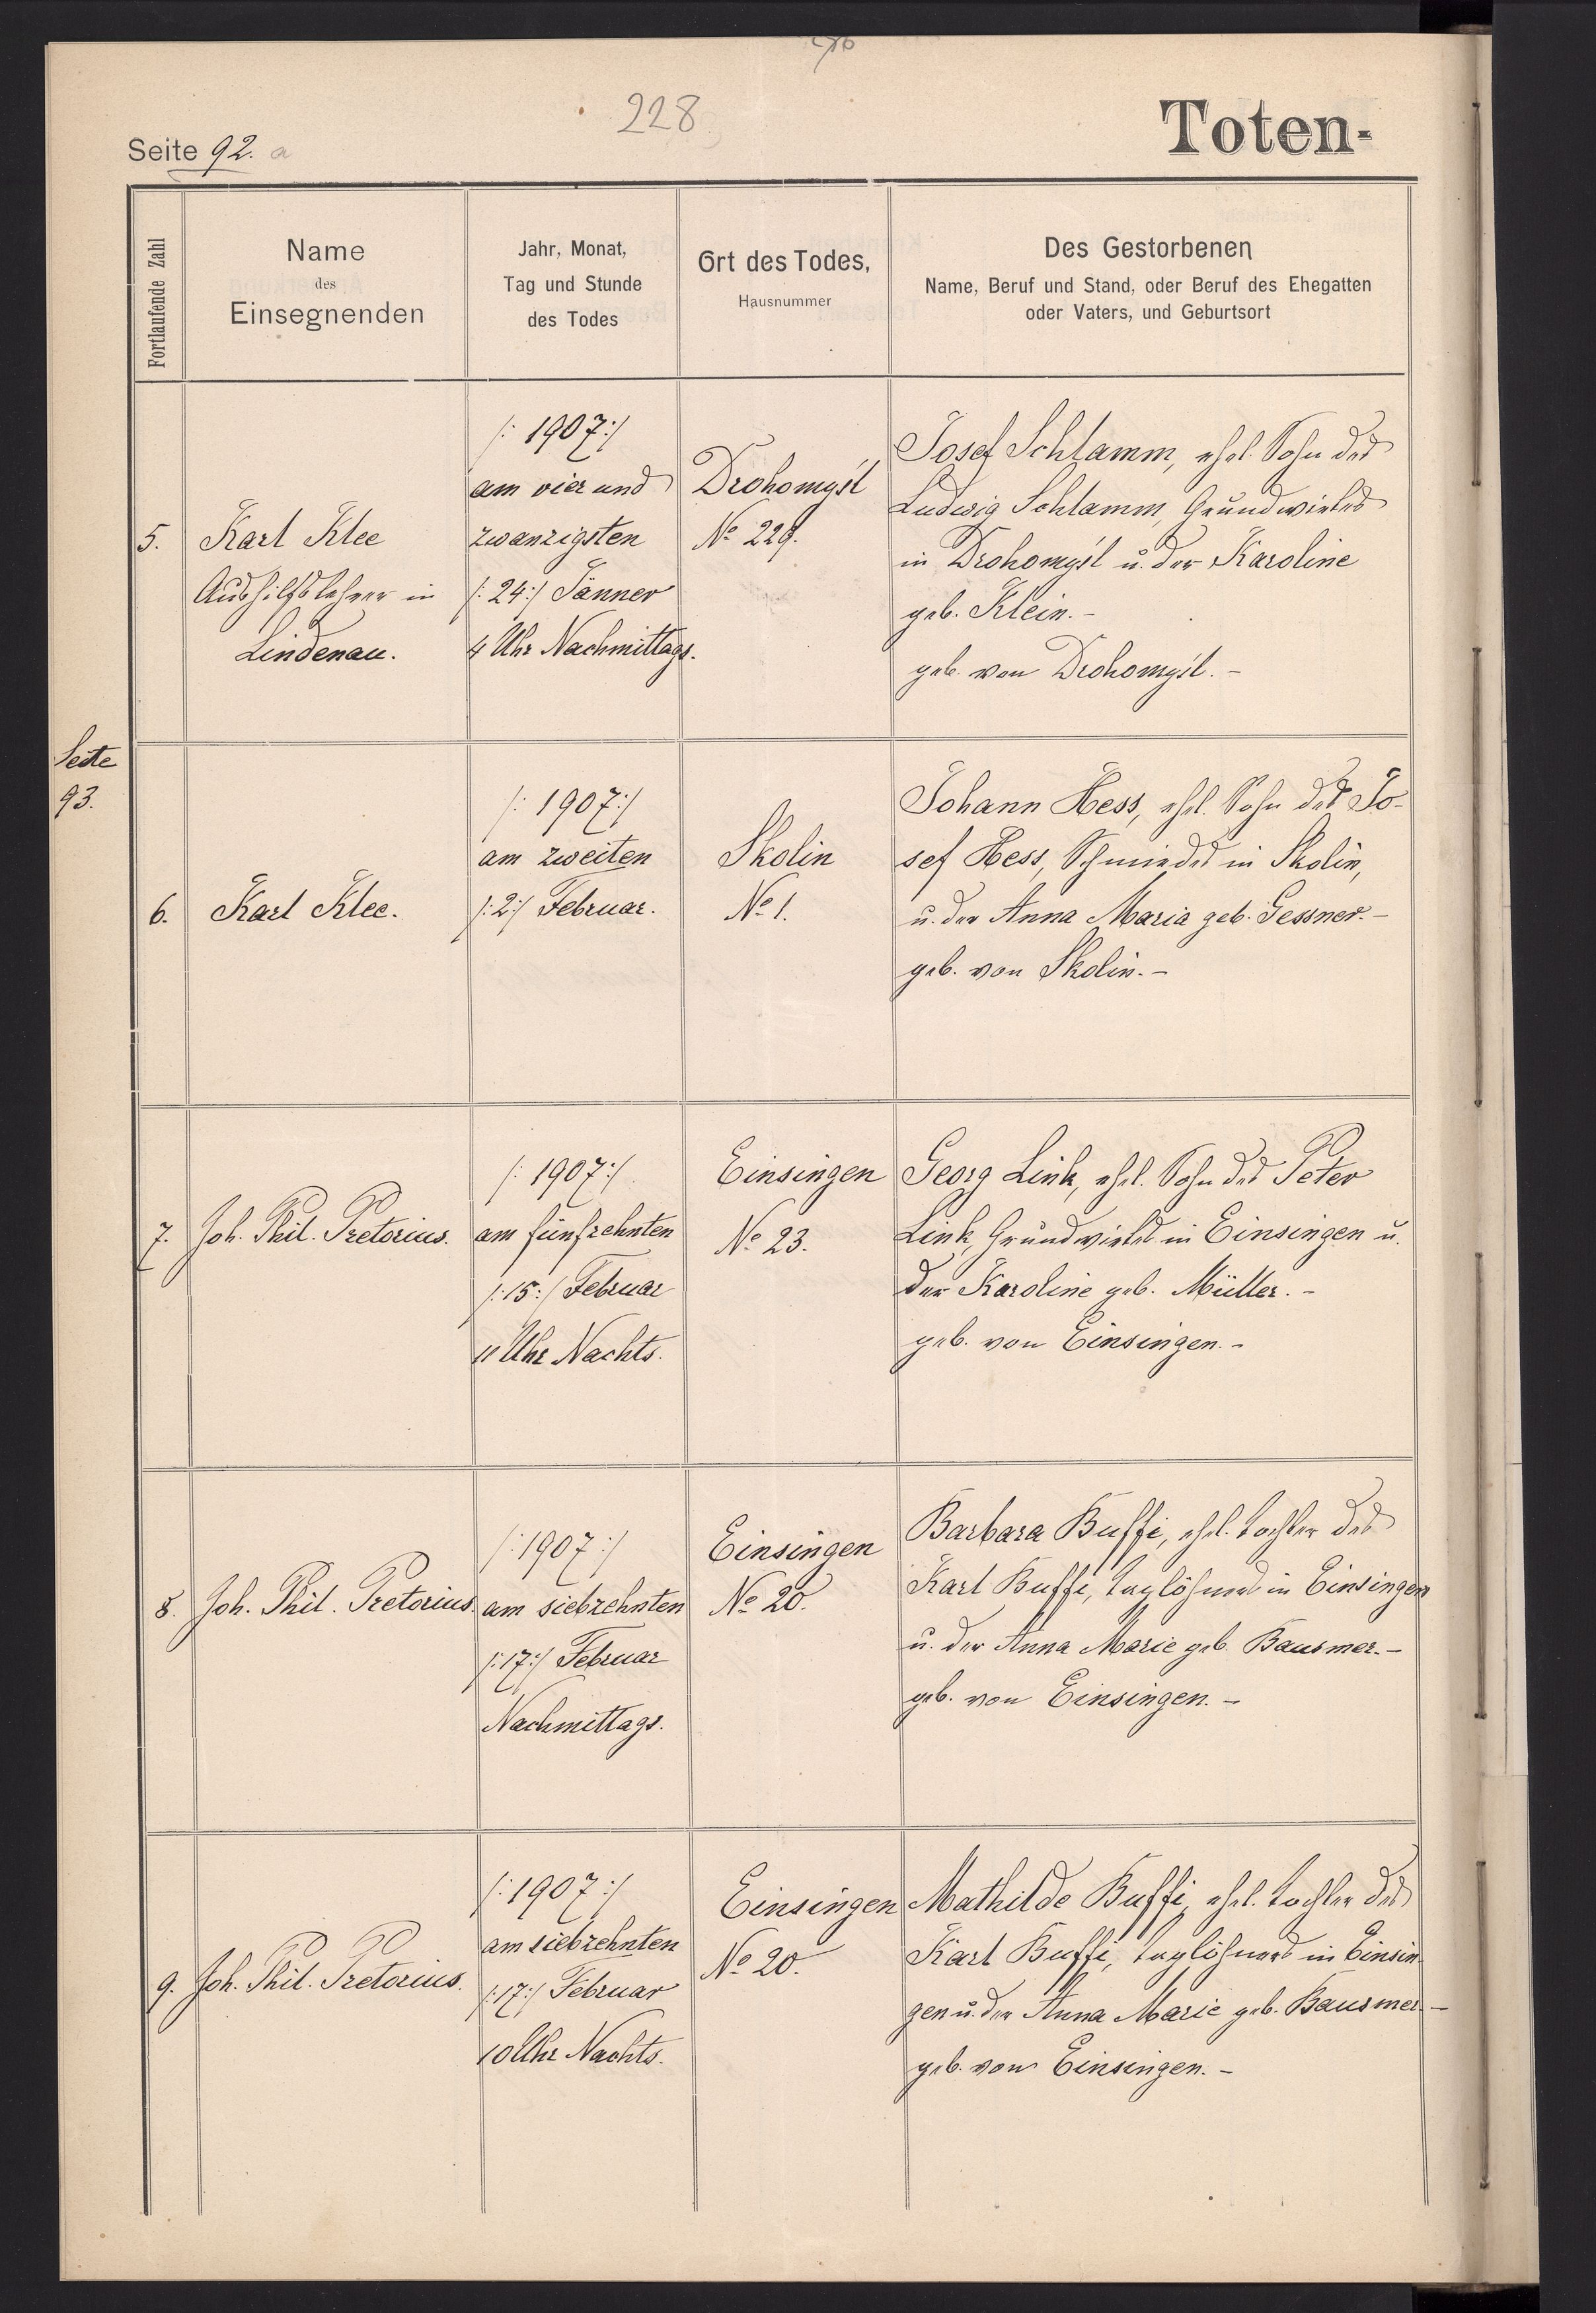 228
Toten-
Seite 92. a
Fortlaufende Zahl
Name
des
Einsegnenden
Jahr, Monat,
Tag und Stunde
des Todes
Ort des Todes,
Hausnummer
Des Gestorbenen
Name, Beruf und Stand, oder Beruf des Ehegatten
oder Vaters, und Geburtsort
5.
Karl Klee
Aushilfslehrer in
Lindenau.
/: 1907:/
am vier und
zwanzigsten
/: 24:/ Jänner
4 Uhr Nachmittags.
Drohomyśl
No 229.
Josef Schlamm, ehel. Sohn des
Ludwig Schlamm, Grundwirtes
in Drohomyśl u. der Karoline
geb. Klein.-
geb. von Drohomyśl.-
Seite
93.
6.
Karl Klee.
/: 1907:/
am zweiten
/:2:/ Februar.
Skolin
No 1.
Johann Hess, ehel. Sohn des Jo-
sef Hess, Schmiedes in Skolin,
u. der Anna Maria geb. Gessner.-
geb. von Skolin.-
7.
Joh. Phil. Pretorius.
/: 1907:/
am fünfzehnten
/:15:/ Februar
11 Uhr Nachts.
Einsingen
No 23.
Georg Link, ehel. Sohn des Peter
Link, Grundwirtes in Einsingen u.
der Karoline geb. Müller.-
geb. von Einsingen.-
8.
Joh. Phil. Pretorius.
/: 1907:/
am siebzehnten
/:17:/ Februar
Nachmittags.
Einsingen
No 20.
Barbara Buffi, ehel. Tochter des
Karl Buffi, Taglöhners in Einsingen
u. der Anna Marie geb. Bausmer.-
geb. von Einsingen.-
9.
Joh. Phil. Pretorius.
/: 1907:/
am siebzehnten
/:17:/ Februar
10 Uhr Nachts.
Einsingen
No 20.
Mathilde Buffi, ehel. Tochter des
Karl Buffi, Taglöhners in Einsin-
gen u. der Anna Marie geb. Bausmer.-
geb. von Einsingen.-